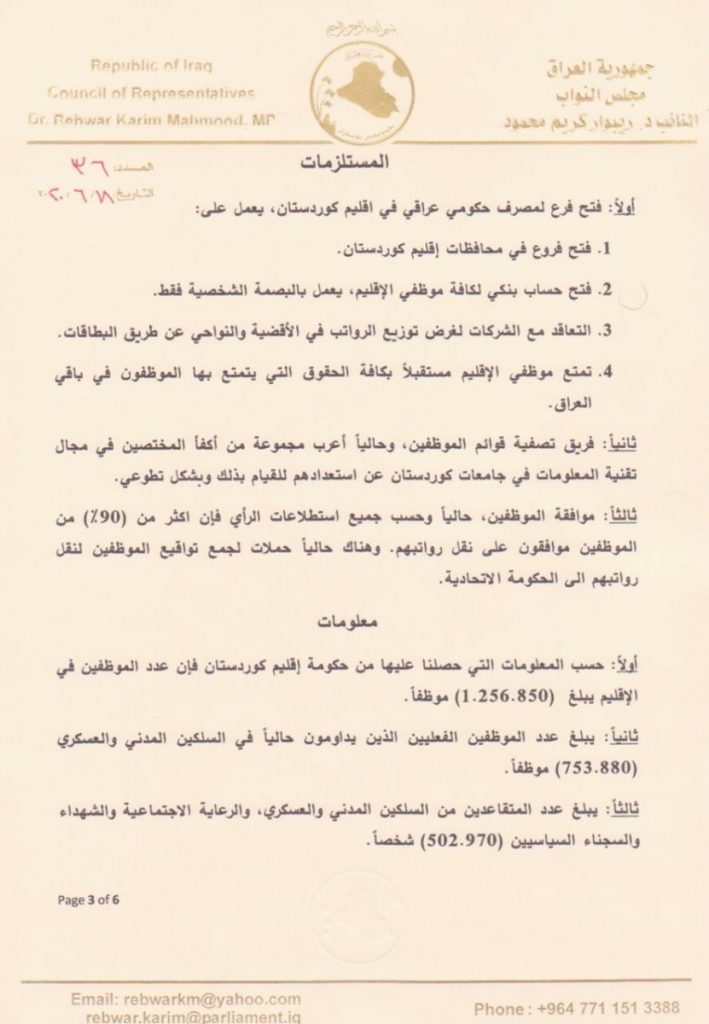 بسم الله الرحمن الرحيم
Republic of Iraq
Council of Representatives
Dr. Rebwar Karim Mahmood. MP
جمهورية العراق
مجلس النواب
النائب د. ريبوار كريم محمود
العدد: ٣٦
التاريخ:
المستلزمات
أولاً: فتح فرع لمصرف حكومي عراقي في اقليم كوردستان، يعمل على:
1. فتح فروع في محافظات إقليم كوردستان.
2. فتح حساب بنكي لكافة موظفي الإقليم، يعمل بالبصمة الشخصية فقط.
3. التعاقد مع الشركات لغرض توزيع الرواتب في الأقضية والنواحي عن طريق البطاقات.
4. تمتع موظفي الإقليم مستقبلاً بكافة الحقوق التي يتمتع بها الموظفون في باقي
العراق.
ثانياً: فريق تصفية قوائم الموظفين، وحالياً أعرب مجموعة من أكفأ المختصين في مجال
تقنية المعلومات في جامعات كوردستان عن استعدادهم للقيام بذلك وبشكل تطوعي.
ثالثاً: موافقة الموظفين، حالياً وحسب جميع استطلاعات الرأي فإن اكثر من (90٪) من
الموظفين موافقون على نقل رواتبهم. وهناك حالياً حملات لجمع تواقيع الموظفين لنقل
رواتبهم الى الحكومة الاتحادية.
معلومات
أولاً: حسب المعلومات التي حصلنا عليها من حكومة إقليم كوردستان فإن عدد الموظفين في
الإقليم يبلغ (1.256.850) موظفاً.
ثانياً: يبلغ عدد الموظفين الفعليين الذين يداومون حالياً في السلكين المدني والعسكري
(753.880) موظفاً.
ثالثاً: يبلغ عدد المتقاعدين من السلكين المدني والعسكري، والرعاية الاجتماعية والشهداء
والسجناء السياسيين (502.970) شخصاً.
Page 3 of 6
Email: rebwarkm@yahoo.com
rebwar.karim@parliament.iq
Phone : +964 771 151 3388